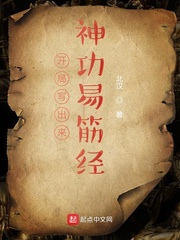 开局写出来
神功易筋经
北汉
著
起点中文网